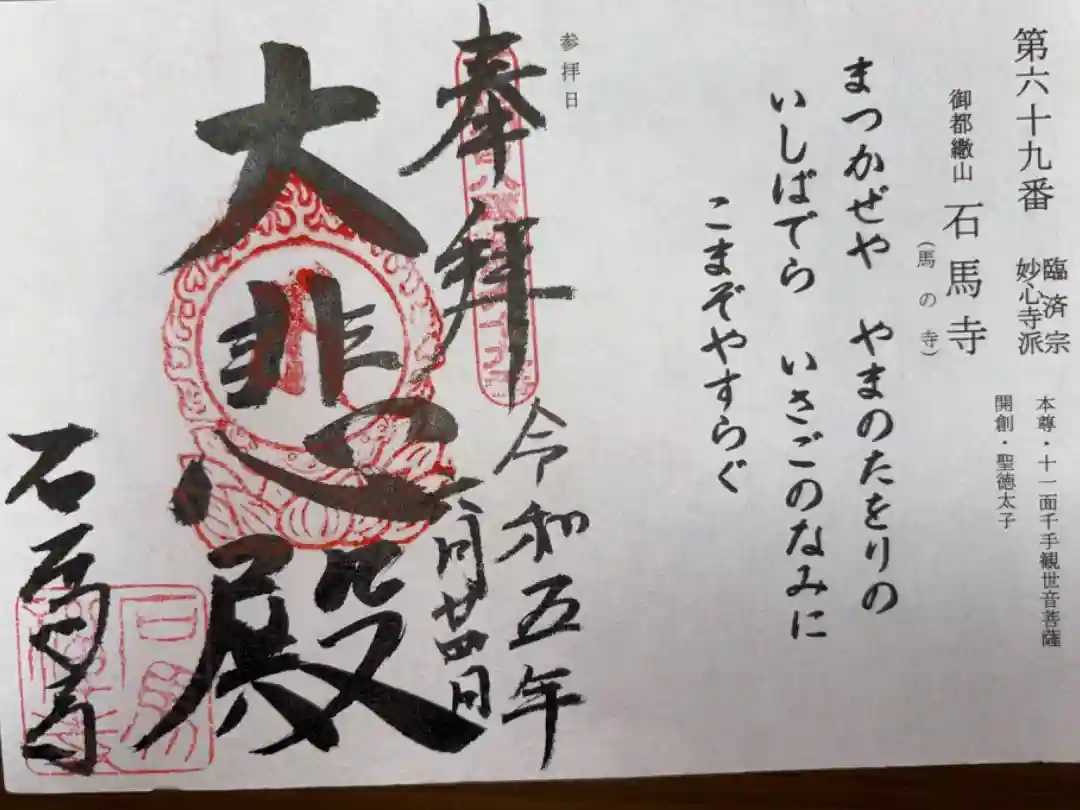 第六十九番
臨済宗
妙心寺派
本尊・十一面千手観世音菩薩
開創・聖徳太子
御都繖山 石馬寺
(馬の寺)
まつかぜや やまのたをりの
いしばでら いさごのなみに
こまぞやすらぐ
参拝日
奉拝
令和五年
一月廿四日
大悲殿
石馬寺